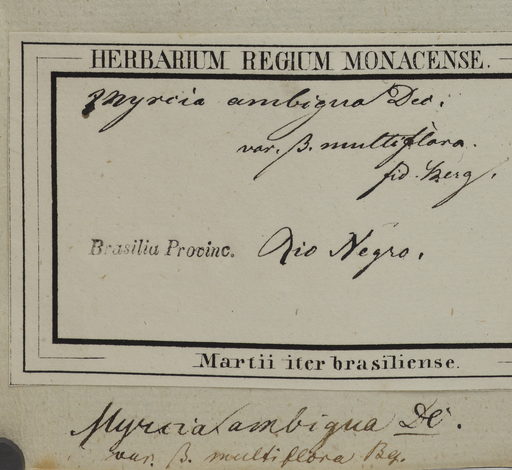 HERBARIUM REGIUM MONACENSE.
Myrcia ambigua Dec.
var. β. multiflora.
fid. Berg.
Brasilia Provinc. Rio Negro.
Martii iter brasiliense.
Myrcia ambigua DC.
var. β. multiflora Bg.